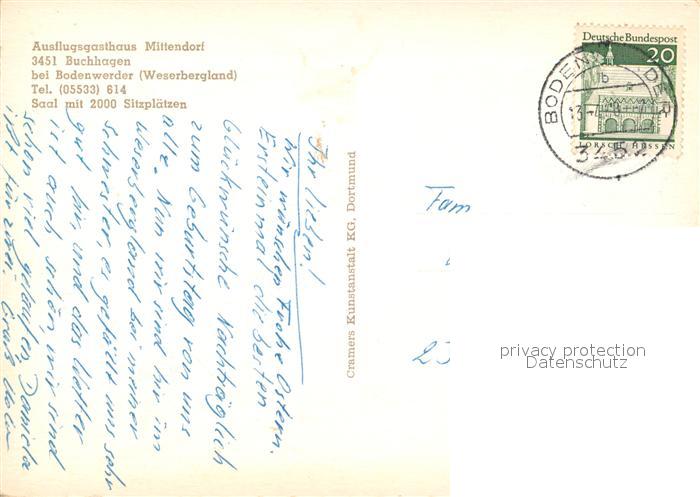 Ausflugsgasthaus Mittendorf
3451 Buchhagen
bei Bodenwerder (Weserbergland)
Tel. (05533) 614
Saal mit 2000 Sitzplätzen
Ihr Lieben!
Wir wünschen Frohe Ostern.
Ersteinmal die besten
Glückwünsche Nachträglich
zum Geburtstag von uns
alle. Nun wir sind hir im
Weserbergland bei meiner
Schwester, es gefällt uns sehr
gut hir, und das Wetter
ist auch schön, wir sind
schon viel gelaufen Daniela
ist für
Cramers Kunstanstalt KG, Dortmund
Deutsche Bundespost
20
LORSCH HESSEN
BODENWERDER
3452
Fam
privacy protection
Datenschutz